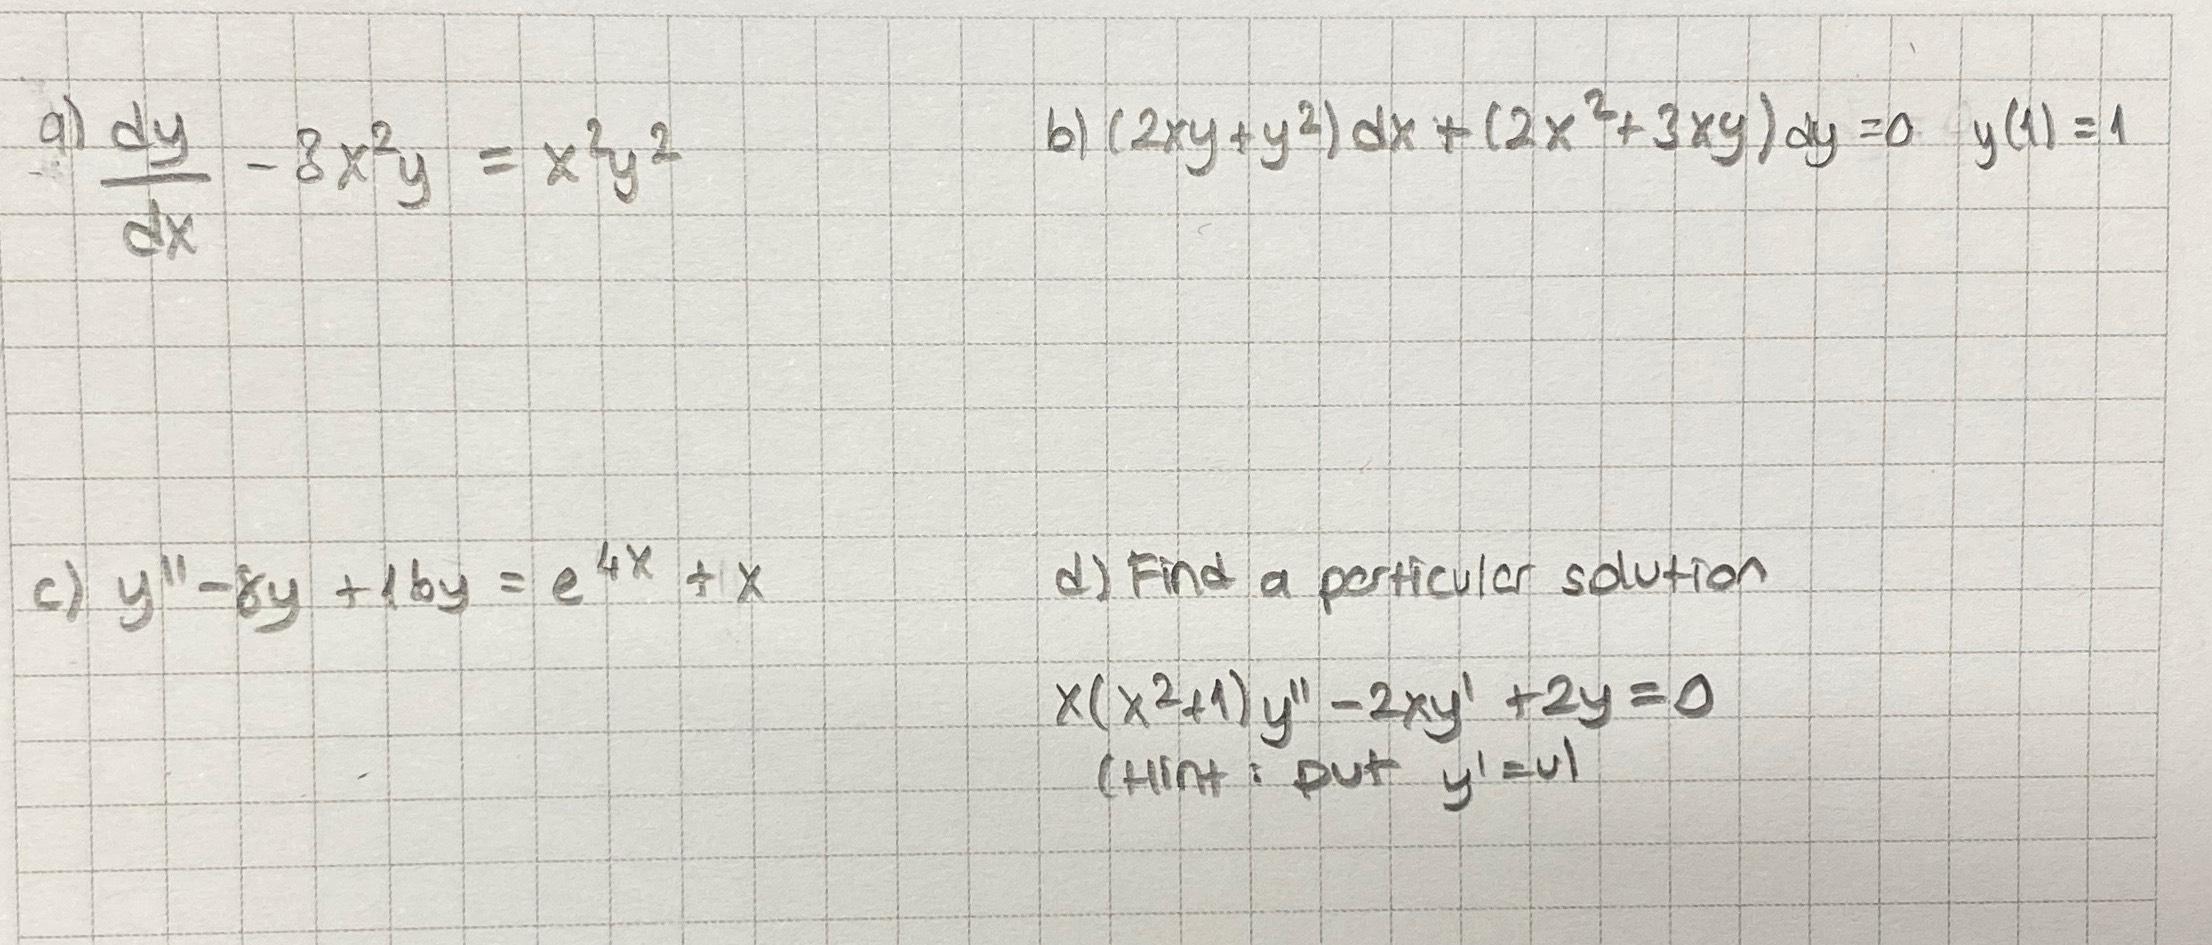 a) dy/dx - 3x²y = x²y²
b) (2xy+y²)dx + (2x²+3xy)dy=0 y(1)=1
c) y'' - 8y + 16y = e^4x + x
d) Find a particular solution
x(x²+1)y'' - 2xy' + 2y = 0
(Hint: put y'=u)